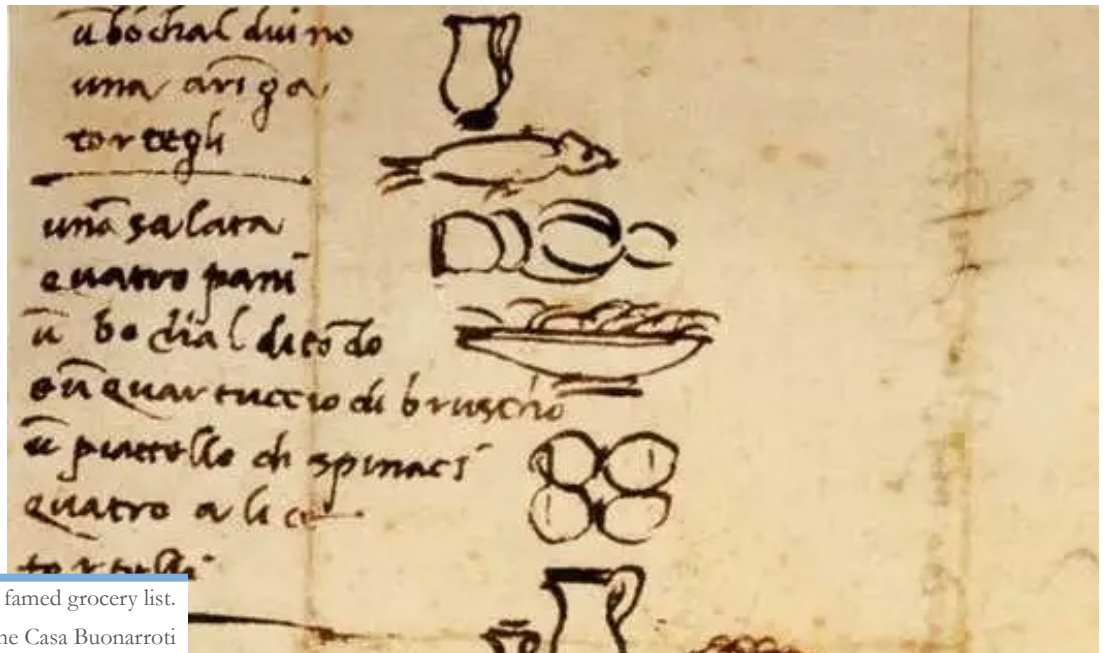 ū bochal duino
una aringa
tortegli
una salata
quatro pani
ū bochal di tōdo
e ū quartuccio di bruscho
ū piattello di spinaci
quatro alice
tortelli
famed grocery list.
ne Casa Buonarroti